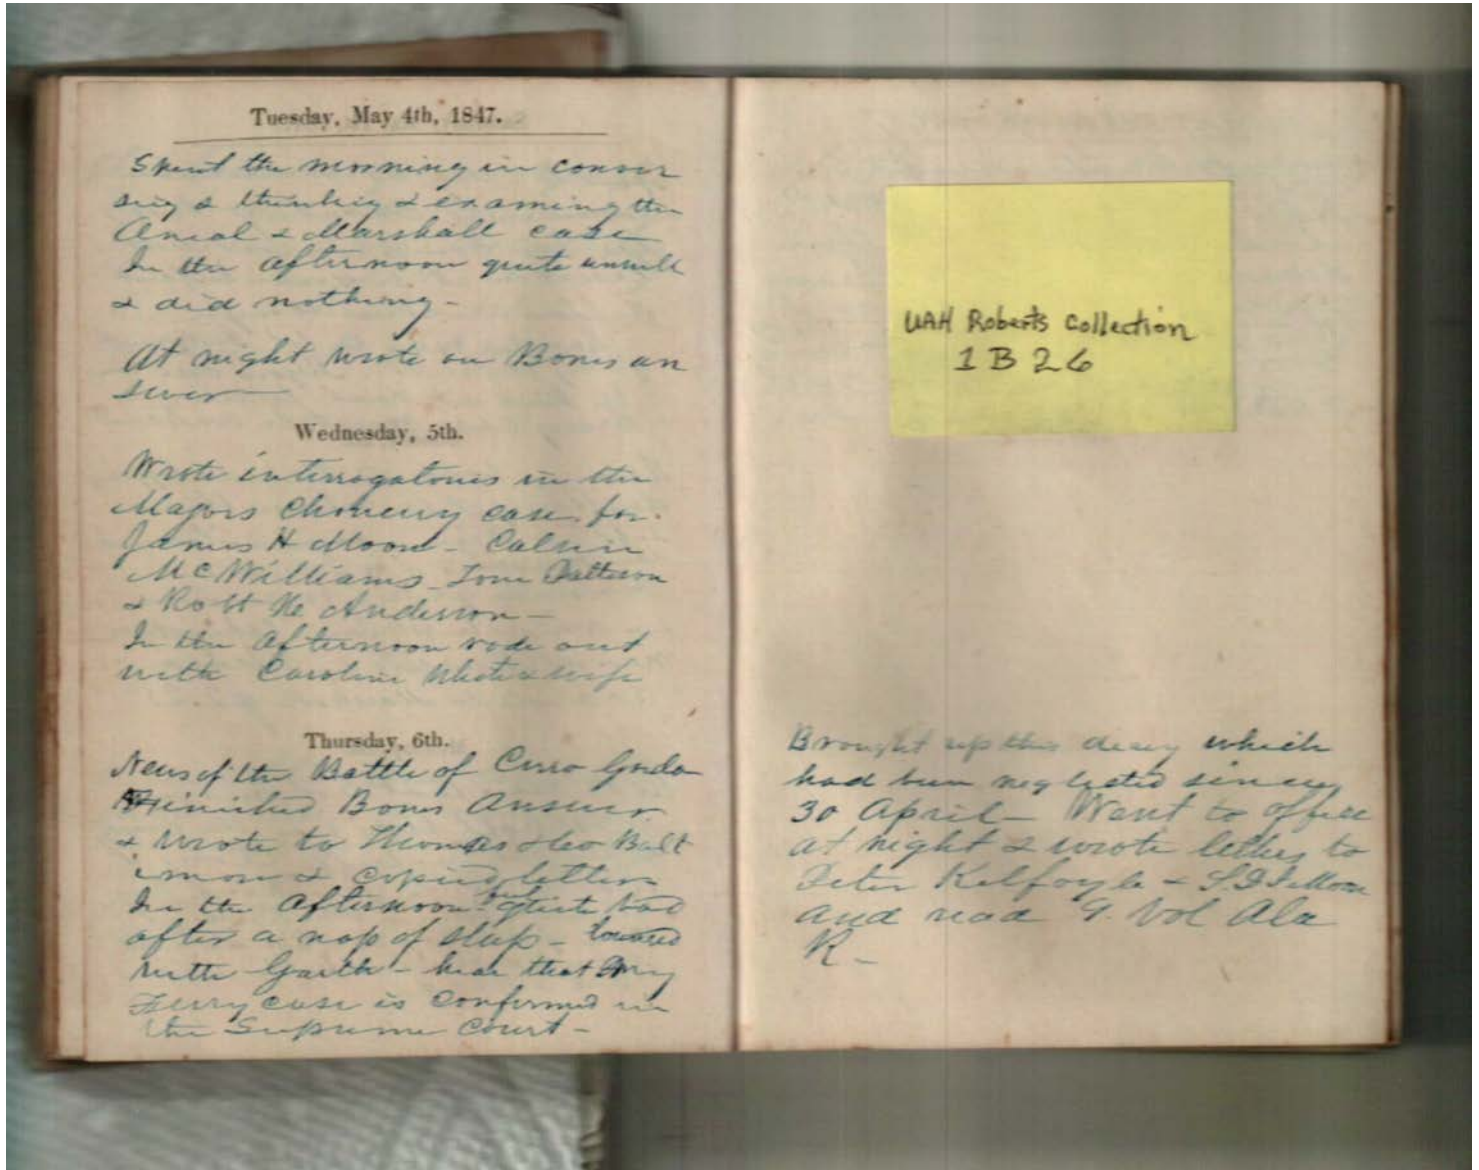 Tuesday, May 4th, 1847.
Spent the morning in conver
sing & thinking & examining the
& Marshall case
In the afternoon quite unwell
& did nothing -
At night wrote on Bones an
swer
Wednesday, 5th.
Wrote interrogatories in the
Majors Chancery case for
James H Moore - Calvin
McWilliams - Tom Patteson
& Robt Anderson -
In the afternoon rode out
with Caroline & wife
Thursday, 6th.
News of the Battle of Cerro Gordo
Finished Bones Answer
& wrote to Thomas Balt
imore & copied letters
In the afternoon quite bad
after a nap of sleep -
with Garth - hear that my
Ferry case is confirmed in
the Supreme Court -
UAH Roberts Collection
1 B 26
Brought up this diary which
had been neglected since
30 April - Went to office
at night & wrote letters to
Peter &
and read 9. Vol Ala
R -